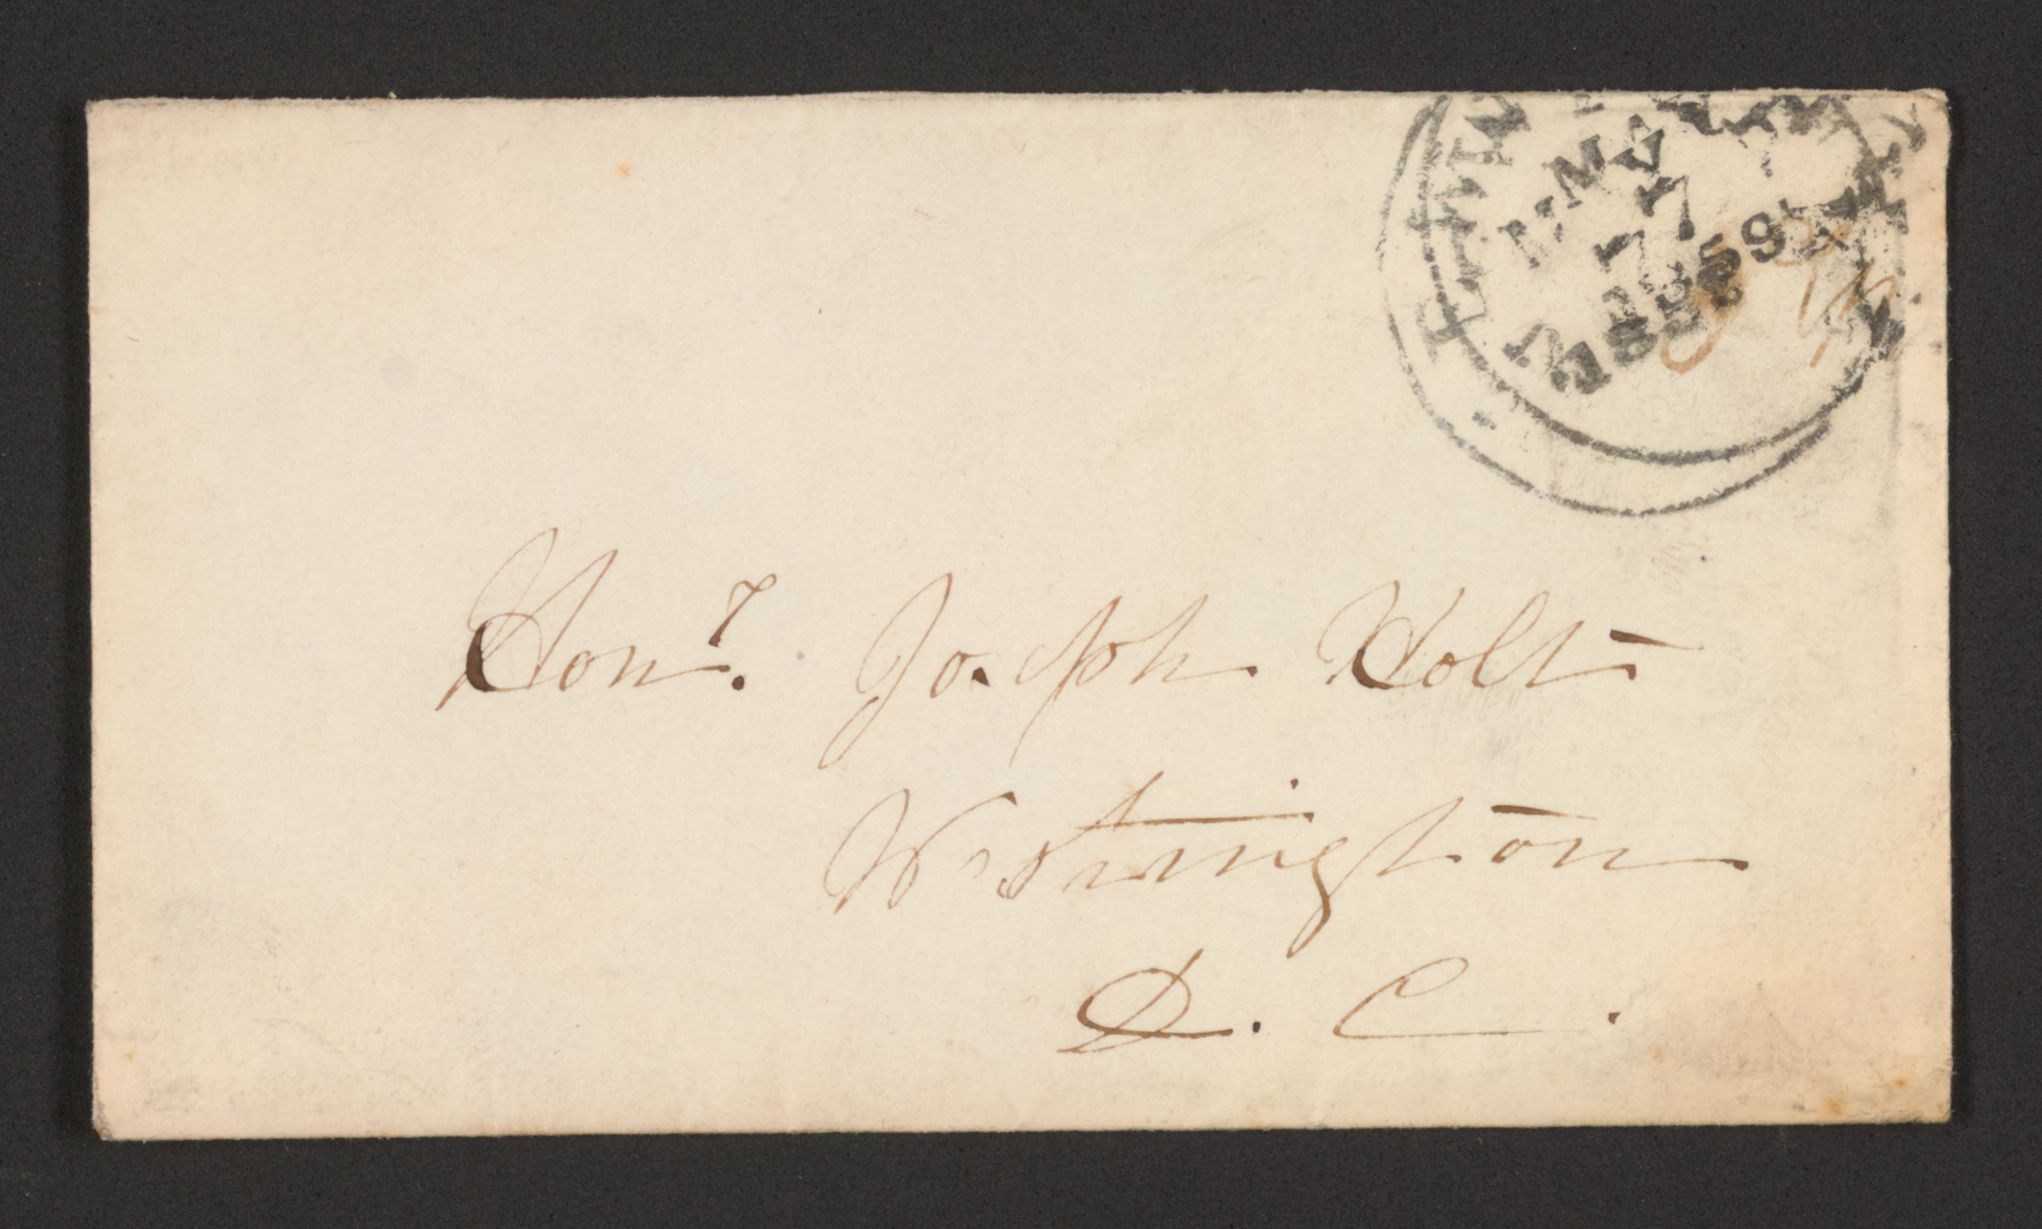 MAY
17
1859
Hon. Joseph Holt
Washington
D. C.